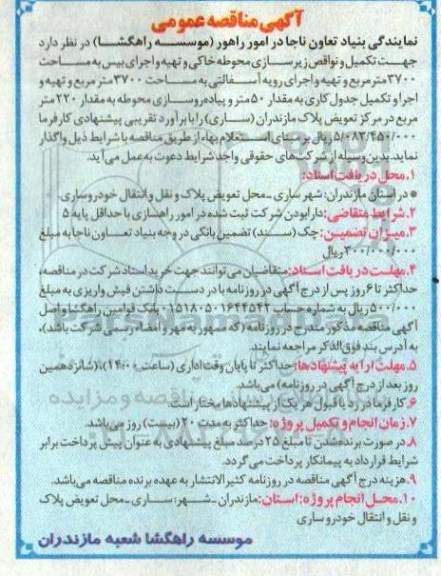 آگهی مناقصه عمومی
نمایندگی بنیاد تعاون ناجا در امور راهور (موسسه راهگشا) در نظر دارد
جهت تکمیل و نواقص زیرسازی محوطه خاکی و تهیه و اجرای بیس به مساحت
۳۷۰۰ متر مربع و تهیه و اجرای رویه آسفالتی به مساحت ۳۷۰۰ متر مربع و تهیه و
اجرا و تکمیل جدول کاری به مقدار ۵۰ متر و پیاده روسازی محوطه به مقدار ۲۲۰ متر
مربع در مرکز تعویض پلاک مازندران (ساری) را با برآورد تقریبی پیشنهادی کارفرما
۵/۰۸۳/۴۵۰/۰۰۰ ریال بر مبنای استعلام بهاء از طریق مناقصه با شرایط ذیل واگذار
نماید. بدین وسیله از شرکت‌های حقوقی واجد شرایط دعوت به عمل می آید.
۱. محل دریافت اسناد:
● در استان مازندران: شهر ساری ـ محل تعویض پلاک و نقل و انتقال خودرو ساری.
۲. شرایط متقاضی: دارا بودن شرکت ثبت شده در امور راهسازی با حداقل پایه ۵
۳. میزان تضمین: چک (سند) تضمین بانکی در وجه بنیاد تعاون ناجا به مبلغ
۳۰۰/۰۰۰/۰۰۰ ریال
۴. مهلت دریافت اسناد: متقاضیان می توانند جهت خرید اسناد شرکت در مناقصه،
حداکثر تا ۶ روز پس از درج آگهی در روزنامه با در دست داشتن فیش واریزی به مبلغ
۵۰۰/۰۰۰ ریال به شماره حساب ۰۱۵۱۸۰۵۰۱۶۴۴۵۴۲ بانک قوامین راهگشا و اصل
آگهی مناقصه مذکور مندرج در روزنامه (که ممهور به مهر و امضاء رسمی شرکت باشد)،
به آدرس بند فوق الذکر مراجعه نمایند.
۵. مهلت ارایه پیشنهادها: حداکثر تا پایان وقت اداری (ساعت ۱۴:۰۰)، (شانزدهمین
روز بعد از درج آگهی در روزنامه) می باشد.
۶. کارفرما در رد یا قبول هر یک از پیشنهادها مختار است.
۷. زمان انجام و تکمیل پروژه: حداکثر به مدت ۲۰ (بیست) روز می باشد.
۸. در صورت برنده شدن تا مبلغ ۲۵ درصد مبلغ پیشنهادی به عنوان پیش پرداخت برابر
شرایط قرارداد به پیمانکار پرداخت می گردد.
۹. هزینه درج آگهی مناقصه در روزنامه کثیر الانتشار به عهده برنده مناقصه می باشد.
۱۰. محل انجام پروژه: استان: مازندران ـ شهر: ساری ـ محل تعویض پلاک
و نقل و انتقال خودرو ساری
موسسه راهگشا شعبه مازندران